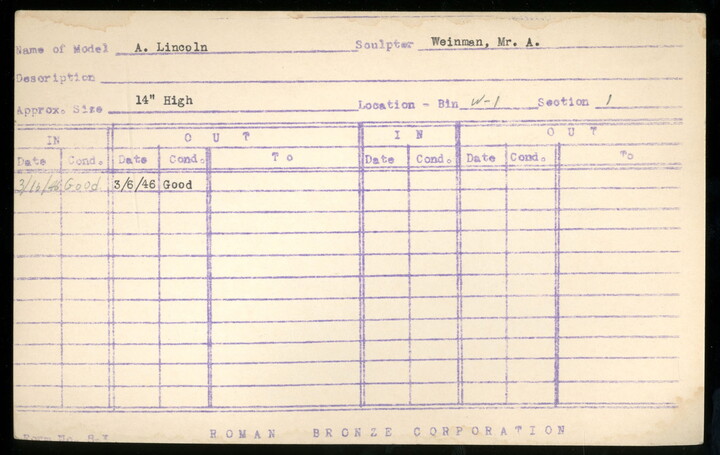 Name of Model A. Lincoln Sculpter Weinman, Mr. A.
Description
Approx. Size 14" High Location - Bin W-1 Section 1
IN OUT IN OUT
Date Cond. Date Cond. To Date Cond. Date Cond. To
Good 3/6/46 Good
ROMAN BRONZE CORPORATION